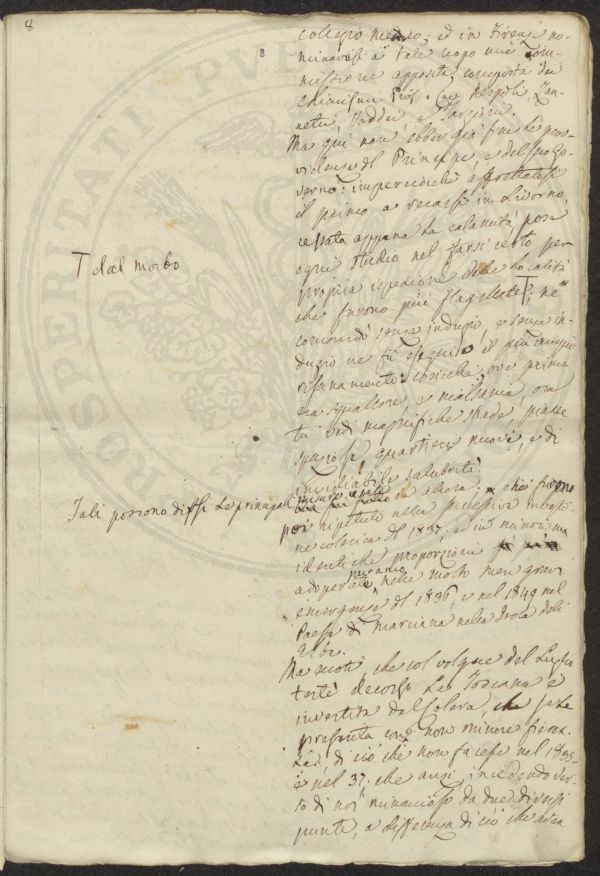 8
8
collegio medico; ed in Firenze no-
minavasi a tale scopo una Com-
missione apposita composta dei
Chiarissimi Prof. Cav.
netti, Taddei e Targioni.
Ma qui non ebber già fine le prov-
videnze del Principe, e del suo Go-
verno: imperciocchè affrettatosi
il primo a recarsi in Livorno,
cessata appena la calamità, pose
ogni studio nel farsi certo per
propria ispezione delle località
che furono più flagellate; ne
comandò senza indugio, e senza in-
dugio ne fu eseguito il più ampio
risanamento: cosicchè, ove prima
era squallore, e malsania, ora
tu vedi magnifiche strade, piazze
spaziose, quartieri nuovi, e di
invidiabile salubrità.
T del morbo
Tali possono dirsi le principali misure usate
in allora, e che furono
poi ripetute nella successiva invasio-
ne colerica del 1837, ed in minori ma
identiche proporzioni
adoperate nelle molto men gravi
emergenze del 1836, e nel 1849 nel
Paese di Marciana nella Isola dell'
Elba.
Ma ecco che col volgere del Luglio
testè decorso La Toscana è
investita dal Colera, che si è
presentato con non minore fierez-
za, di ciò che non facesse nel 1835
e nel 37. che anzi, incedendo ver-
so di noi minaccioso da due diversi
punti, a differenza di ciò che avea